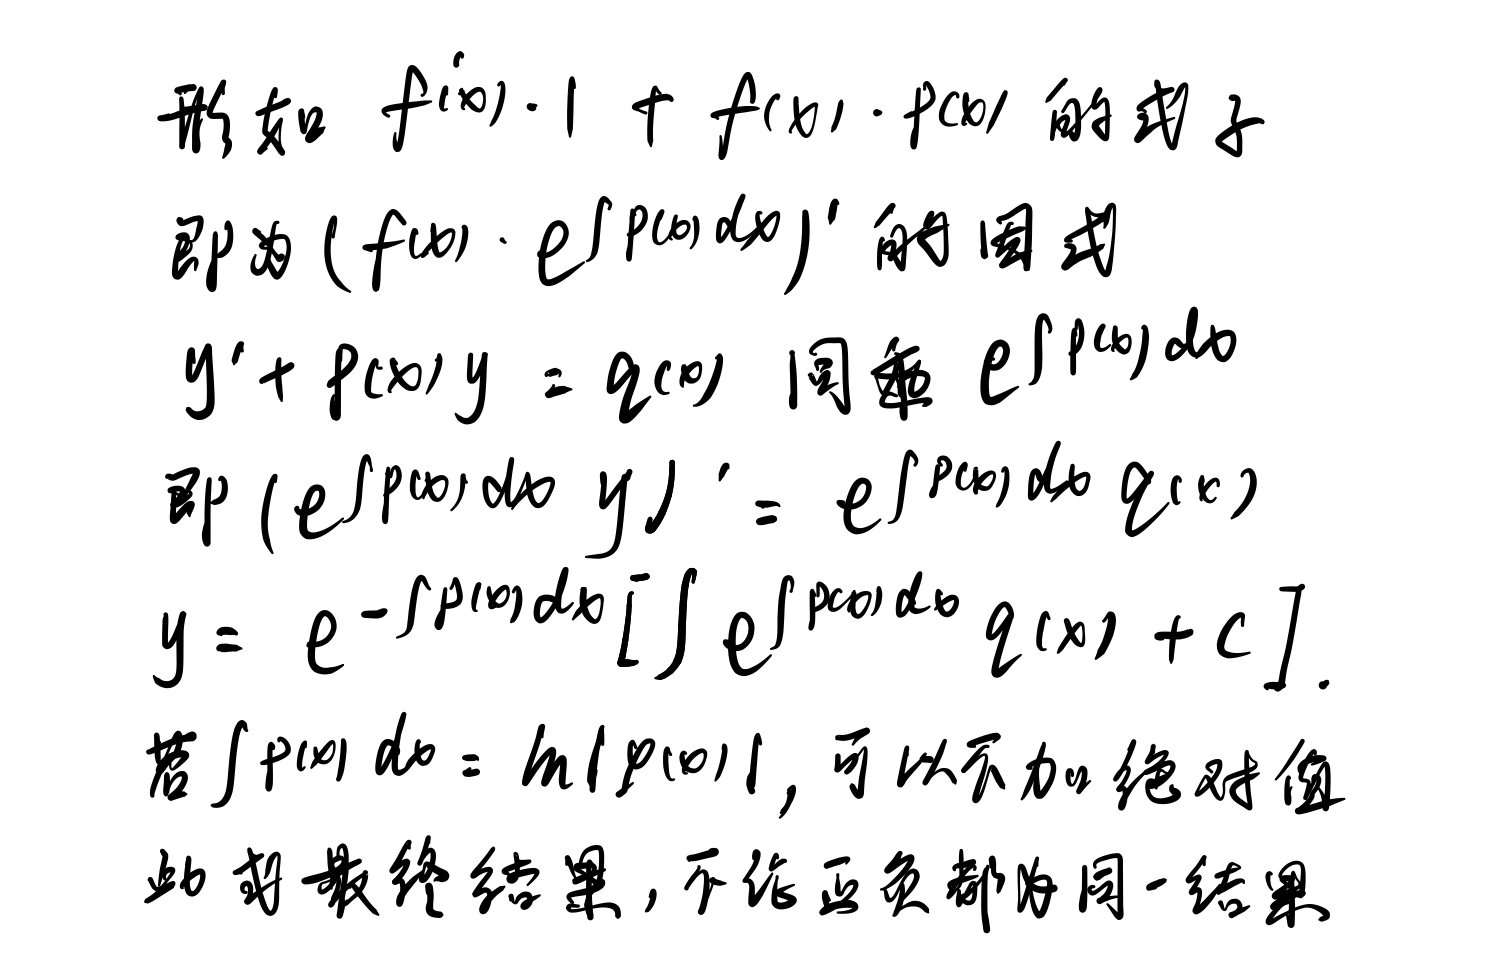 形如 f'(x)·1 + f(x)·p(x) 的式子
即为 (f(x)·e^{∫p(x)dx})' 的因式
y' + p(x)y = q(x) 同乘 e^{∫p(x)dx}
即 (e^{∫p(x)dx} y)' = e^{∫p(x)dx} q(x)
y = e^{-∫p(x)dx}[∫e^{∫p(x)dx} q(x) + C].
若∫p(x)dx = ln|φ(x)|, 可以不加绝对值
此或最终结果, 不论正负都为同一结果